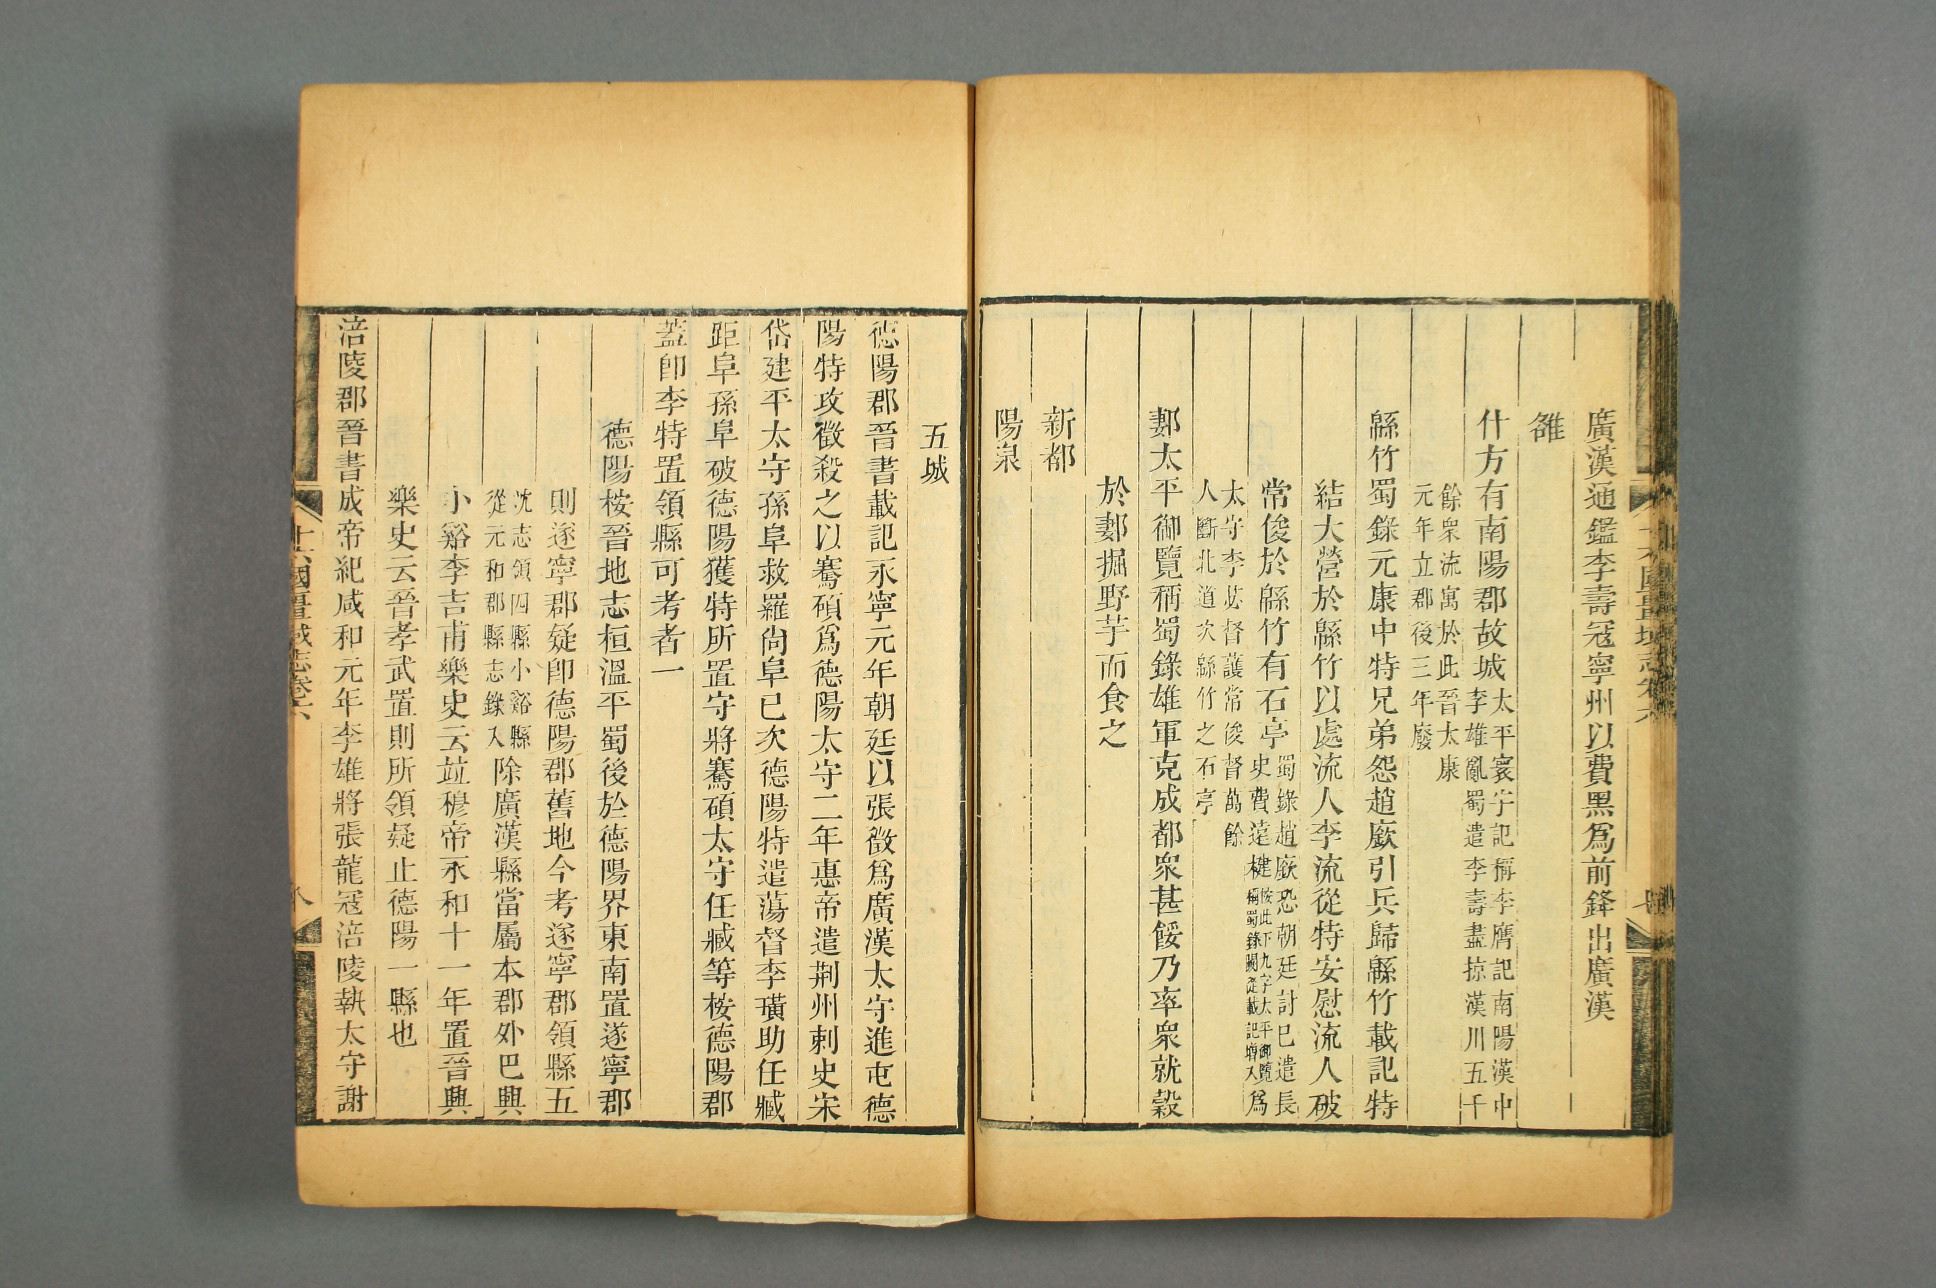 廣漢通鑑李壽冦寧州以費黑爲前鋒出廣漢
雒
什方有南陽郡故城
太平寰宇記稱李膺記南陽漢中
李雄亂蜀遣李壽盡掠漢川五千
餘衆流寓於此晉太康
元年立郡後三年廢
緜竹蜀錄元康中特兄弟怨趙廞引兵歸緜竹載記特
結大營於緜竹以處流人李流從特安慰流人破
常俊於緜竹有石亭
蜀錄趙廞恐朝廷討已遣長
史費遠犍
按此下九字太平御覽
稱蜀錄闕從載記增入
爲
太守李苾督護常俊督萬餘
人斷北道次緜竹之石亭
郪太平御覽稱蜀錄雄軍克成都衆甚餒乃率衆就穀
於郪掘野芋而食之
新都
陽泉
五城
德陽郡晉書載記永寧元年朝廷以張徵爲廣漢太守進屯德
陽特攻徵殺之以騫碩爲德陽太守二年惠帝遣荆州刺史宋
岱建平太守孫阜救羅尙阜已次德陽特遣蕩督李璜助任臧
距阜孫阜破德陽獲特所置守將騫碩太守任臧等桉德陽郡
蓋卽李特置領縣可考者一
德陽桉晉地志桓溫平蜀後於德陽界東南置遂寧郡
則遂寧郡疑卽德陽郡舊地今考遂寧郡領縣五
沈志領四縣小谿縣
從元和郡縣志錄入
除廣漢縣當屬本郡外巴興
小谿李吉甫樂史云竝穆帝永和十一年置晉興
樂史云晉孝武置則所領疑止德陽一縣也
涪陵郡晉書成帝紀咸和元年李雄將張龍冦涪陵執太守謝
十六國疆域志卷六
八